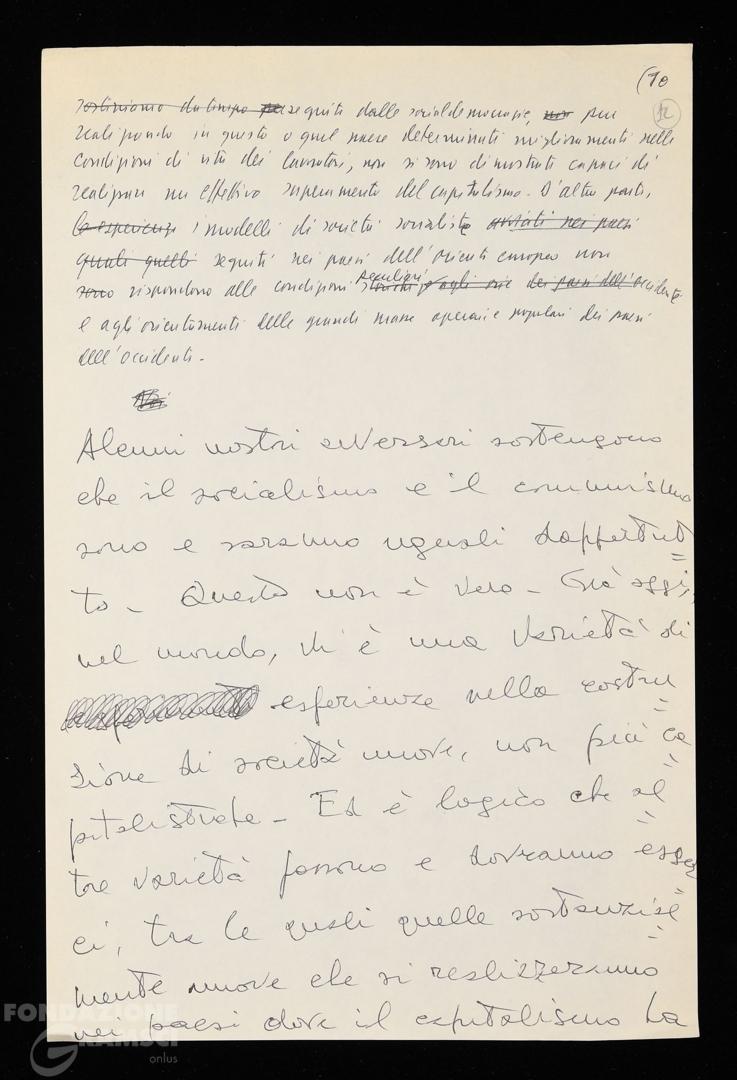 (10
12
sosteniamo da tempo perseguite dalle socialdemocrazie, non pur
realizzando in questo o quel paese determinati miglioramenti nelle
condizioni di vita dei lavoratori, non si sono dimostrati capaci di
realizzare un effettivo superamento del capitalismo. D'altra parte,
le esperienze i modelli di società socialiste avviati nei paesi
quali quelli seguiti nei paesi dell'oriente europeo non
sono rispondono alle condizioni peculiari agli dei paesi dell'occidente
e agli orientamenti delle grandi masse operaie e popolari dei paesi
dell'occidente -
Noi
Alcuni nostri avversari sostengono
che il socialismo e il comunismo
sono e saranno uguali dappertut=
to - Questo non è vero - Già oggi,
nel mondo, vi è una varietà di
esperienze nella costru=
zione di società nuove, non più ca=
pitalistiche - Ed è logico che al=
tre varietà possono e dovranno esser=
ci, tra le quali quelle sostanzial=
mente nuove che si realizzeranno
nei paesi dove il capitalismo ha
FONDAZIONE
GRAMSCI
onlus